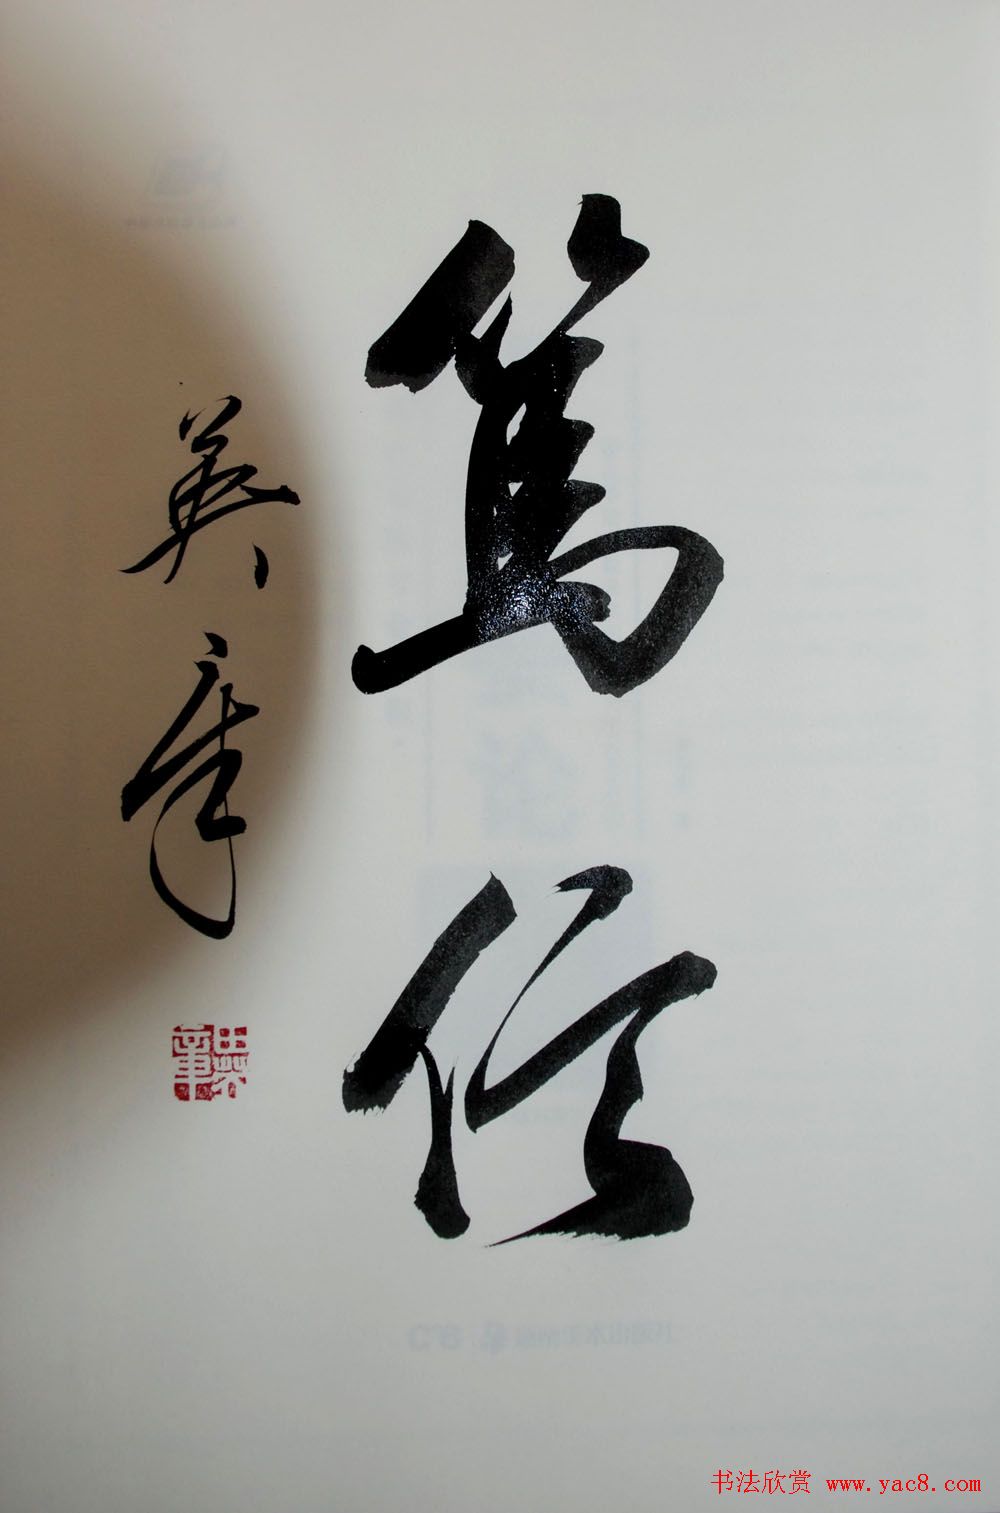 篤信
英章
书法欣赏 www.yac8.com